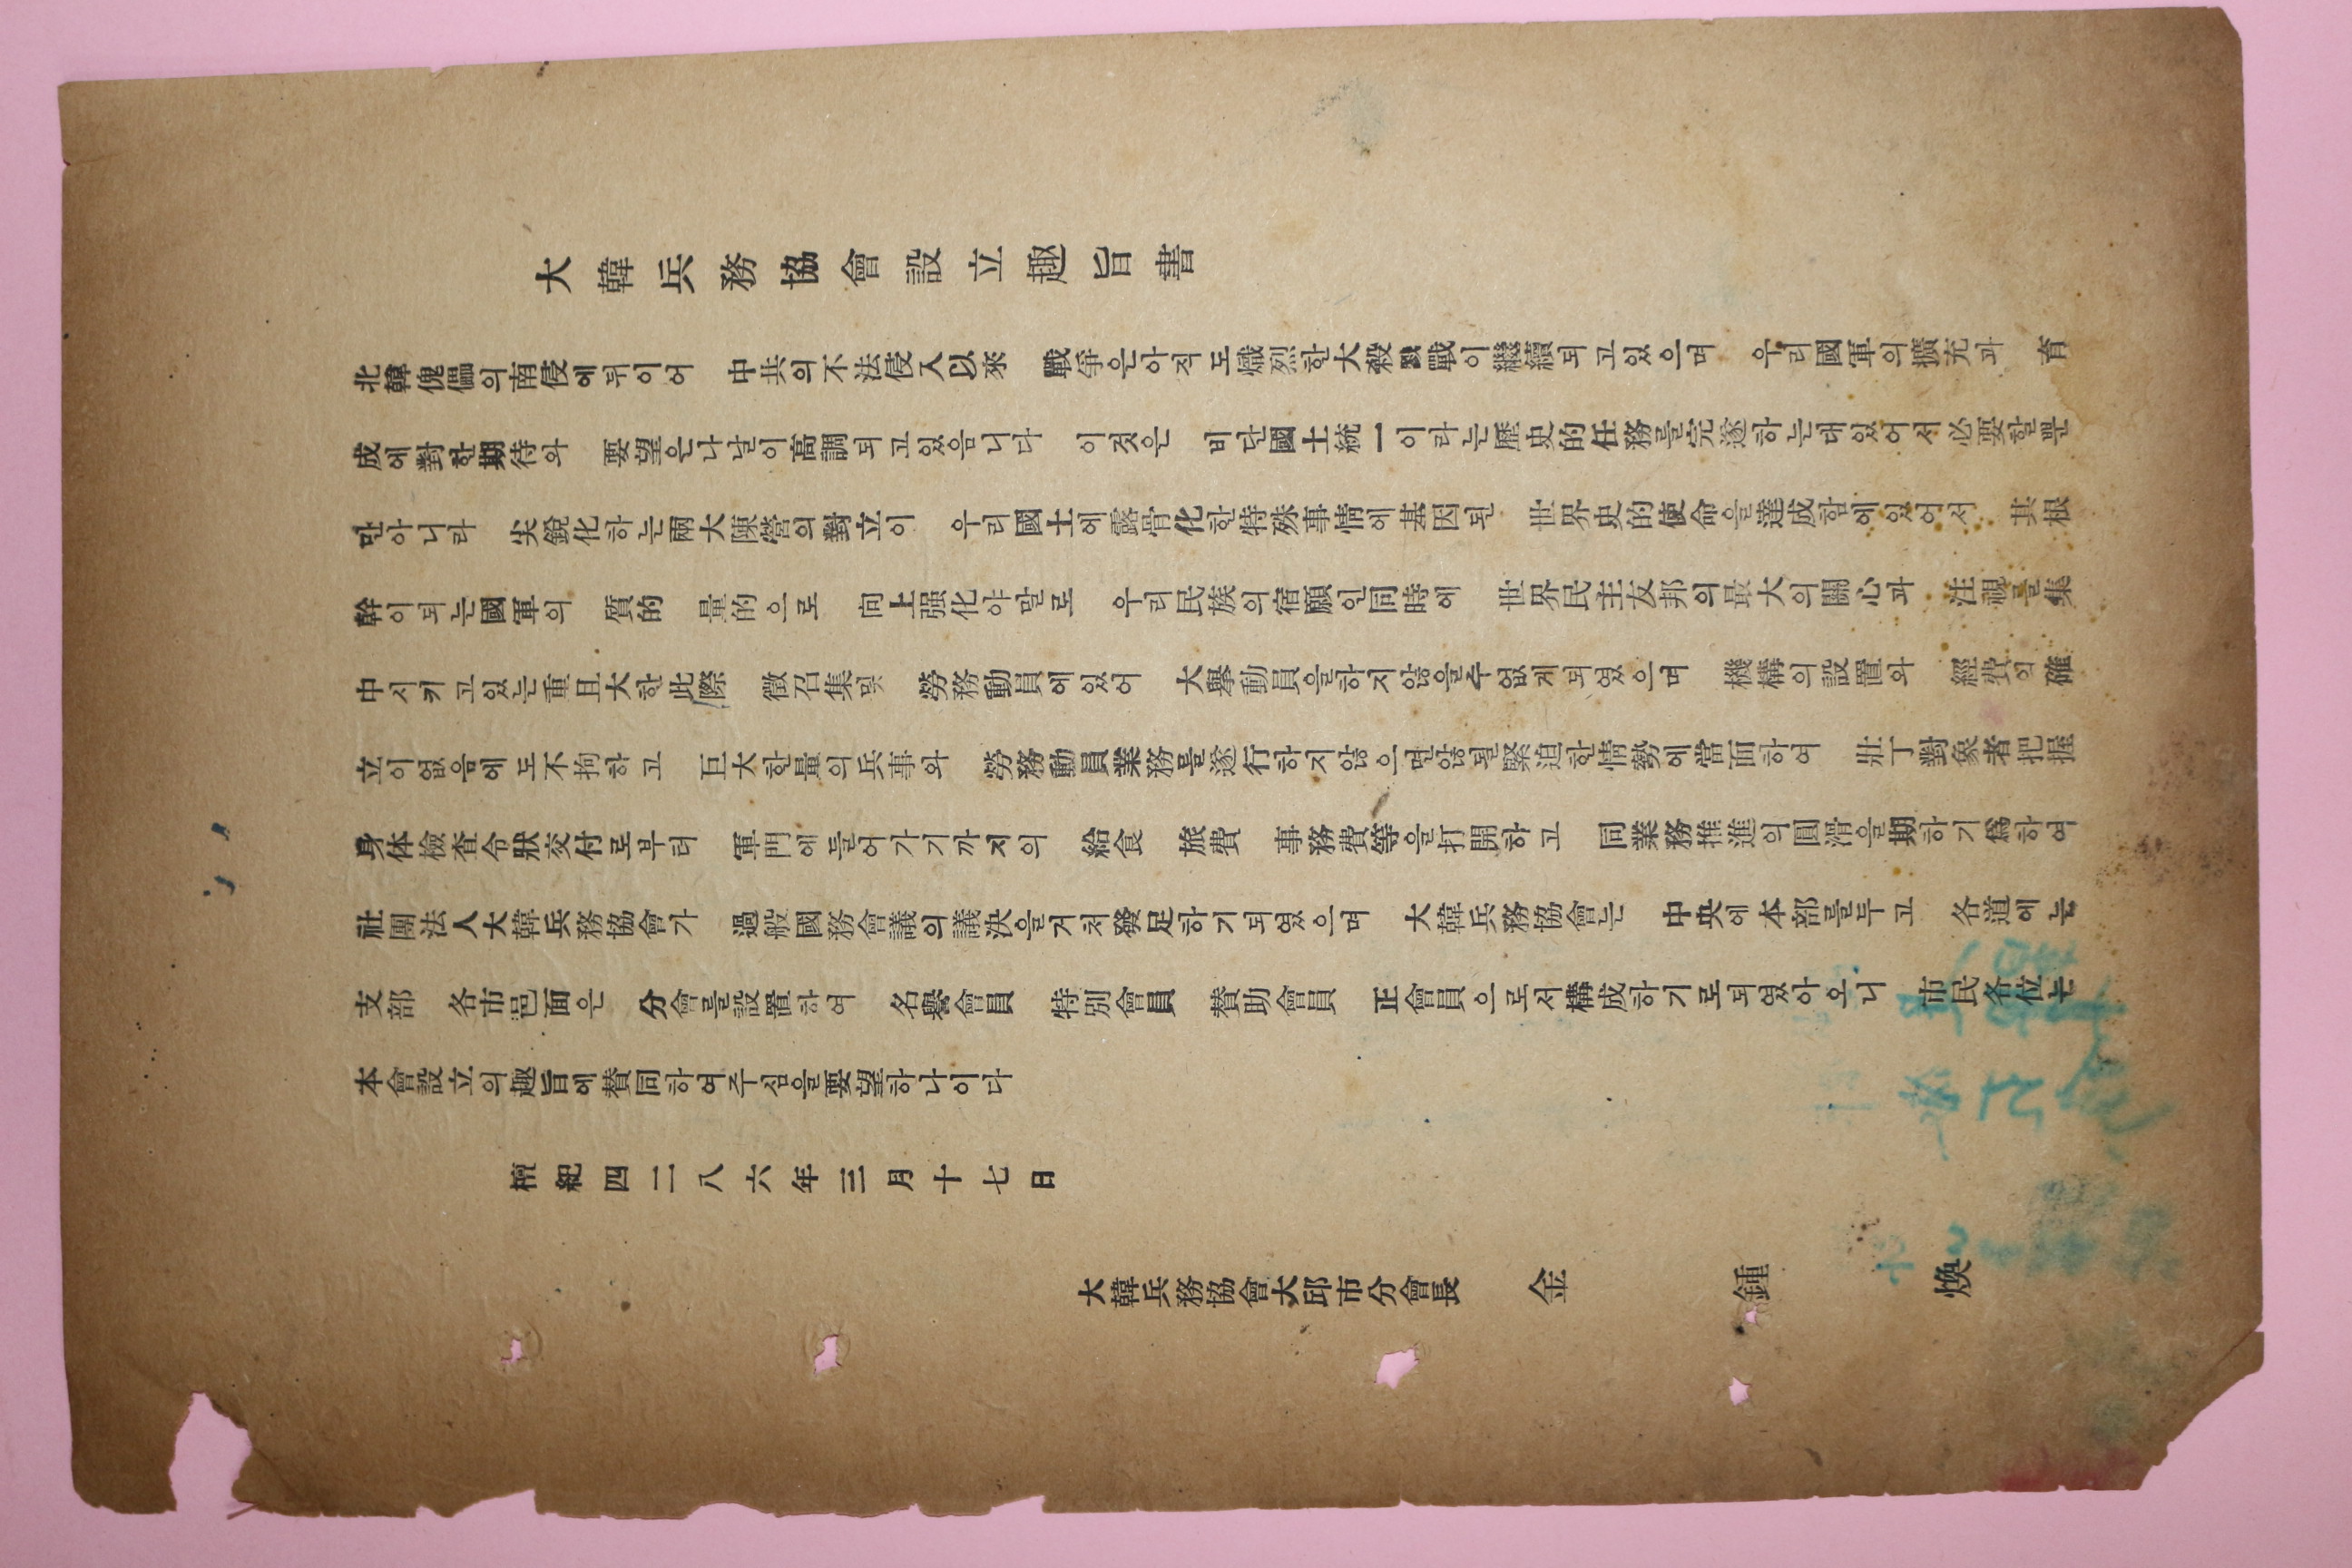 大韓兵務協會設立趣旨書
北韓傀儡의南侵에뒤이어 中共의不法侵入以來 戰爭은아직도熾烈한大殺戮戰이繼續되고있으며 우리國軍의擴充과 育
成에對한期待와 要望은나날이高調되고있음니다 이것은 비단國土統一이라는歷史的任務를完遂하는대있어서必要할뿐
만아니라 尖銳化하는兩大陳營의對立이 우리國土에露骨化한特殊事情에基因된 世界史的使命을達成함에있어서 其根
幹이되는國軍의 質的 量的으로 向上强化야말로 우리民族의宿願인同時에 世界民主友邦의最大의關心과 注視를集
中시키고있는重且大한此際 徵召集및 勞務動員에있어 大擧動員을하지않을수없게되였으며 機構의設置와 經費의確
立이없음에도不拘하고 巨大한量의兵事와 勞務動員業務를遂行하지않으면않될緊迫한情勢에當面하여 壯丁對象者把握
身体檢査令狀交付로부터 軍門에들어가기까지의 給食 旅費 事務費等을打開하고 同業務推進의圓滑을期하기爲하여
社團法人大韓兵務協會가 過般國務會議의議決을거처發足하기되였으며 大韓兵務協會는 中央에本部를두고 各道에는
支部 各市邑面은 分會를設置하여 名譽會員 特別會員 賛助會員 正會員으로서構成하기로되였아오니 市民各位는
本會設立의趣旨에賛同하여주심을要望하나이다
檀紀四二八六年三月十七日
大韓兵務協會大邱市分會長 金 鍾 煥